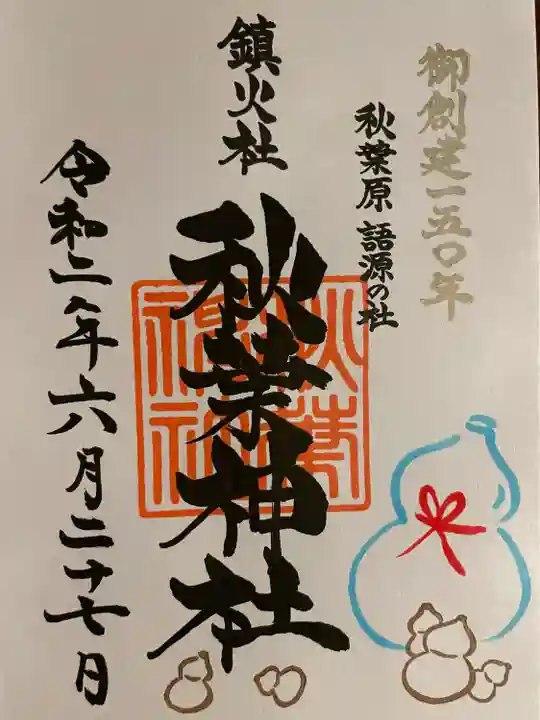 御創建一五〇年
秋葉原 語源の社
鎮火社
秋葉神社
令和二年六月二十七日